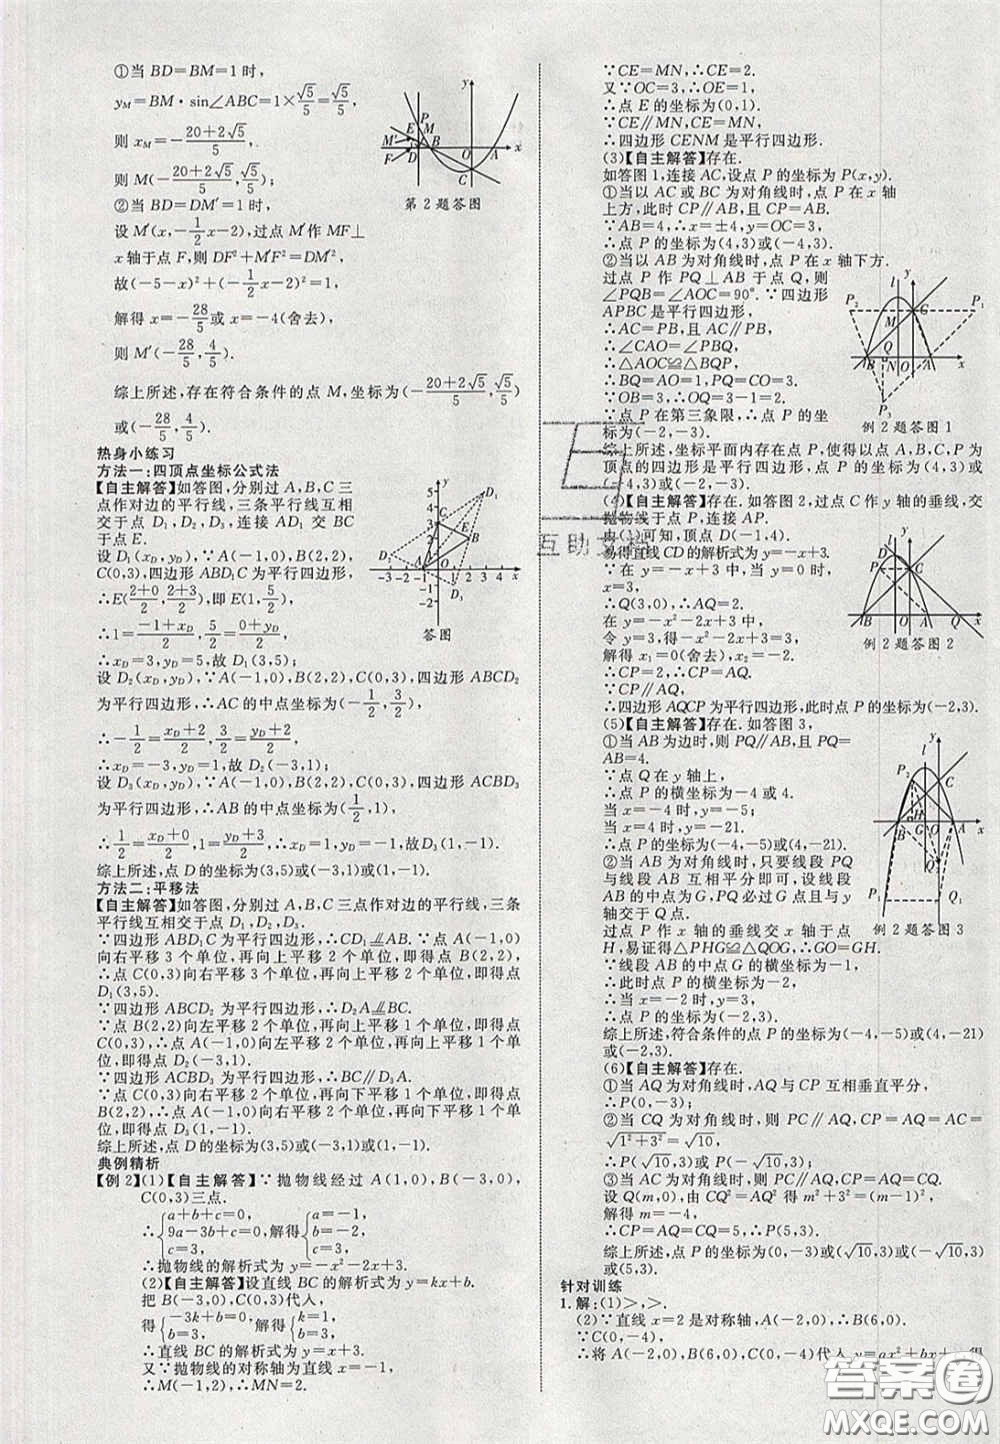 ①当 BD=BM=1时,
yM=BM·sin∠ABC=1×√5/5=√5/5,
则 xM=-(20+2√5)/5,
则 M(-(20+2√5)/5,√5/5);
②当 BD=DM′=1时,
设 M′(x,-1/2x-2),过点M′作 MF⊥
x轴于点F,则DF²+M′F²=DM′²,
故(-5-x)²+(-1/2x-2)²=1,
解得 x=-28/5或x=-4(舍去),
则 M′(-28/5,4/5).
综上所述,存在符合条件的点 M,坐标为(-(20+2√5)/5,√5/5)
或(-28/5,4/5).
第2题答图
热身小练习
方法一:四顶点坐标公式法
【自主解答】如答图,分别过A,B,C三
点作对边的平行线,三条平行线互相
交于点 D₁,D₂,D₃,连接 AD₁ 交 BC
于点E.
设 D₁(xD,yD),∵A(-1,0),B(2,2),
C(0,3),四边形 ABD₁C为平行四边形,
∴E((2+0)/2,(2+3)/2),即E(1,5/2),
∴1=(-1+xD)/2,5/2=(0+yD)/2,
∴xD=3,yD=5,故 D₁(3,5);
答图
设 D₂(xD,yD).∵A(-1,0),B(2,2),C(0,3),四边形ABCD₂
为平行四边形,∴AC的中点坐标为(-1/2,3/2),
∴-1/2=(xD+2)/2,3/2=(yD+2)/2,∴xD=-3,yD=1,故D₂(-3,1);
设 D₃(xD,yD),∵A(-1,0),B(2,2),C(0,3),四边形ACBD₃
为平行四边形,∴AB的中点坐标为(1/2,1),
∴1/2=(xD+0)/2,1=(yD+3)/2,∴xD=1,yD=-1,故D₃(1,-1).
综上所述,点D的坐标为(3,5)或(-3,1)或(1,-1).
方法二:平移法
【自主解答】如答图,分别过A,B,C三点作对边的平行线,三条
平行线互相交于点D₁,D₂,D₃.
∵四边形ABD₁C为平行四边形,∴CD₁⫽AB.∵点A(-1,0)
向右平移3个单位,再向上平移2个单位,即得点B(2,2),
∴点C(0,3)向右平移3个单位,再向上平移2个单位,即得点
D₁(3,5).
∵四边形ABCD₂为平行四边形,∴D₂A⫽BC.
∵点B(2,2)向左平移2个单位,再向上平移1个单位,即得点
C(0,3),∴点A(-1,0)向左平移2个单位,再向上平移1个单
位,即得点D₂(-3,1).
∵四边形ACBD₃为平行四边形,∴BC∥D₃A.
∵点C(0,3)向右平移2个单位,再向下平移1个单位,即得点
B(2,2),∴点A(-1,0)向右平移2个单位,再向下平移1个单
位,即得点D₃(1,-1).
综上所述,点D的坐标为(3,5)或(-3,1)或(1,-1).
典例精析
【例2】(1)【自主解答】∵抛物线经过A(1,0),B(-3,0),
C(0,3)三点.
∴{a+b+c=0, 9a-3b+c=0, c=3, 解得{a=-1, b=-2, c=3,
∴抛物线的解析式为y=-x²-2x+3.
(2)【自主解答】设直线BC的解析式为y=kx+b.
把B(-3,0),C(0,3)代入,
得{-3k+b=0, b=3, 解得{k=1, b=3,
∴直线BC的解析式为y=x+3.
又∵抛物线的对称轴为直线x=-1,
∴M(-1,2),∴MN=2.
∵CE=MN,∴CE=2.
又∵OC=3,∴OE=1,
∴点E的坐标为(0,1).
∵CE∥MN,CE=MN,
∴四边形CENM是平行四边形.
(3)【自主解答】存在.
如答图1,连接AC,设点P的坐标为P(x,y).
①当以AC或BC为对角线时,点P在x轴
上方,此时CP∥AB,CP=AB,
∵AB=4,∴x=±4,y=OC=3,
∴点P的坐标为(4,3)或(-4,3).
②当以AB为对角线时,点P在x轴下方.
过点P作PQ⊥AB于点Q,则
∠PQB=∠AOC=90°.∵四边形
APBC是平行四边形,
∴AC=PB,AC∥PB,
∴∠CAO=∠PBQ,
∴△AOC≌△BQP,
∴BQ=AO=1,PQ=CO=3.
∵OB=3,∴OQ=3-1=2.
∵点P在第三象限,∴点P的坐
标为(-2,-3).
例2题答图1
综上所述,坐标平面内存在点P,使得以点A,B,C,P
为顶点的四边形是平行四边形,点P的坐标为(4,3)或
(-4,3)或(-2,-3).
(4)【自主解答】存在.如答图2,过点C作y轴的垂线,交
抛物线于点P,连接AP.
由(1)可知,顶点D(-1,4).
易得直线CD的解析式为y=-x+3.
∵在y=-x+3中,当y=0时,
x=3,
∴Q(3,0),∴AQ=2.
在y=-x²-2x+3中,
令y=3,得3=-x²-2x+3,
解得x₁=0(舍去),x₂=-2.
∴CP=2,∴CP=AQ.
∵CP∥AQ,
例2题答图2
∴四边形AQCP为平行四边形,此时点P的坐标为(-2,3).
(5)【自主解答】存在.如答图3,
①当AB为边时,则PQ∥AB,且PQ=
AB=4.
∵点Q在y轴上,
∴点P的横坐标为-4或4,
当x=-4时,y=-5;
当x=4时,y=-21.
∴点P的坐标为(-4,-5)或(4,-21).
②当AB为对角线时,只要线段PQ
与线段AB互相平分即可,设线段
AB的中点为G,PQ必过点G且与y
轴交于Q点.
过点P作x轴的垂线交x轴于点
H,易证得△PHG≌△QOG,∴GO=GH.
例2题答图3
∵线段AB的中点G的横坐标为-1,
∴此时点P的横坐标为-2,
∴当x=-2时,y=3,
∴点P的坐标为(-2,3).
综上所述,符合条件的点P的坐标为(-4,-5)或(4,-21)
或(-2,3).
(6)【自主解答】存在.
①当AQ为对角线时,AQ与CP互相垂直平分,
∴P(0,-3);
②当CQ为对角线时,则PC∥AQ,CP=AQ=AC=
√(1²+3²)=√10,
∴P(√10,3)或(-√10,3);
③当AC为对角线时,则CP∥AQ,CP=AQ=CQ.
设Q(m,0),由AQ=CQ得m²+3²=(1-m)²,
解得m=-4.
∴CP=AQ=CQ=5,∴P(5,3).
综上所述,点P的坐标为(0,-3)或(√10,3)或(-√10,3)
或(5,3).
针对训练
1.解:(1)>,>.
(2)∵直线x=2是对称轴,A(-2,0),∴B(6,0).
∵C(0,-4),
∴将A(-2,0),B(6,0),C(0,-4)代入y=ax²+bx+c,得
互助文档
答案圈
MXQE.COM